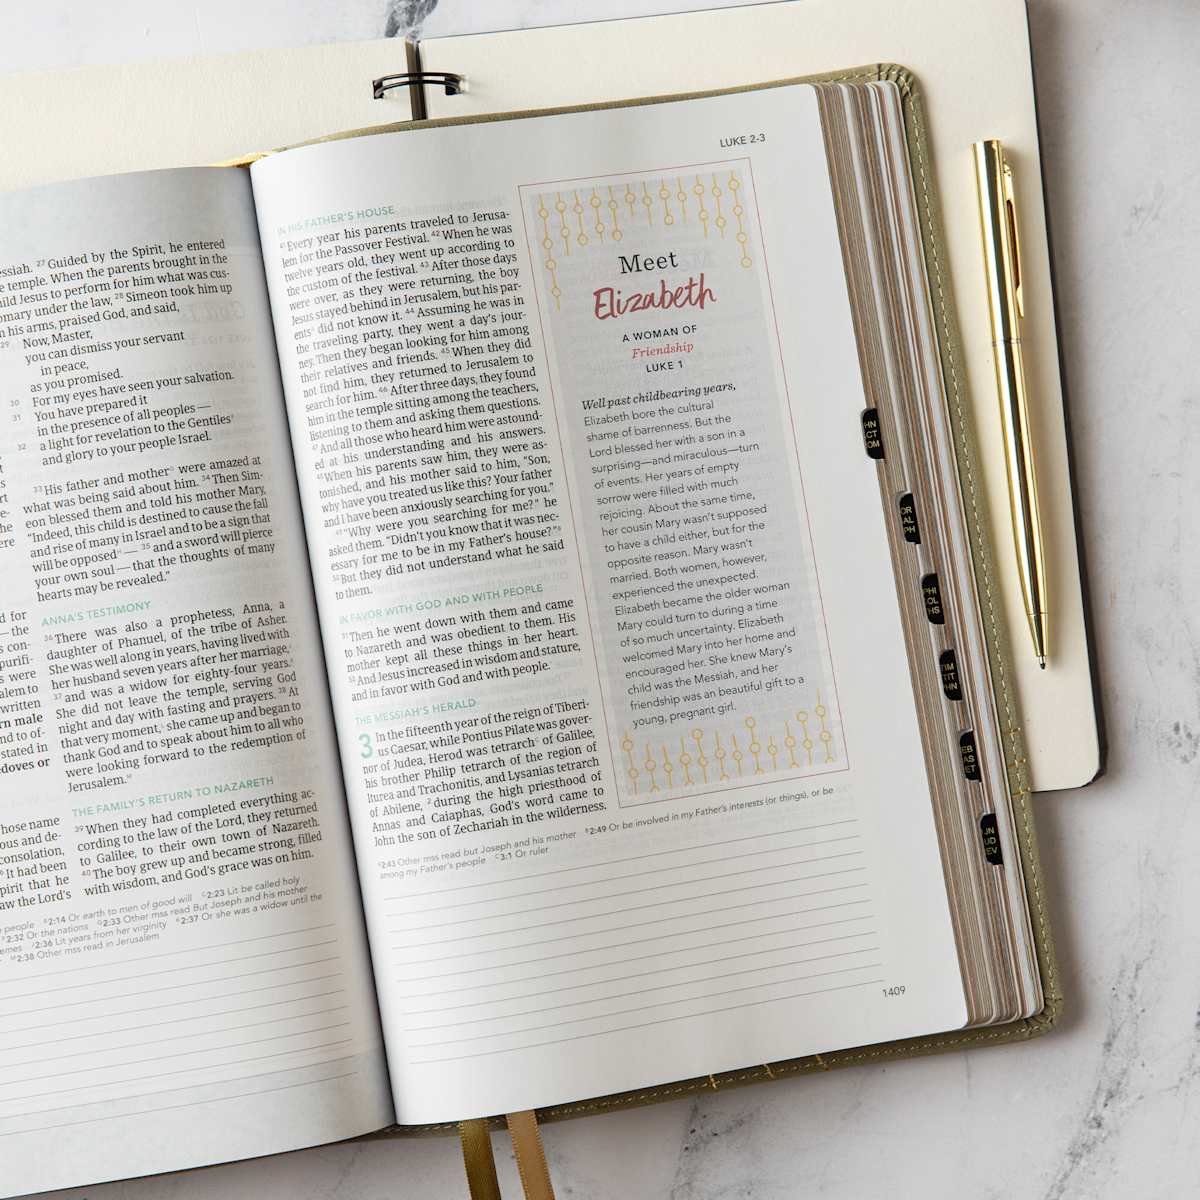 essiah. 27 Guided by the Spirit, he entered
e temple. When the parents brought in the
hild Jesus to perform for him what was cus-
omary under the law, 28 Simeon took him up
n his arms, praised God, and said,
29 Now, Master,
you can dismiss your servant
in peace,
as you promised.
30 For my eyes have seen your salvation.
31 You have prepared it
in the presence of all peoples —
32 a light for revelation to the Gentiles
and glory to your people Israel.
33 His father and mother were amazed at
what was being said about him. 34 Then Sim-
eon blessed them and told his mother Mary,
“Indeed, this child is destined to cause the fall
and rise of many in Israel and to be a sign that
will be opposed — 35 and a sword will pierce
your own soul — that the thoughts of many
hearts may be revealed.”
ANNA'S TESTIMONY
36 There was also a prophetess, Anna, a
daughter of Phanuel, of the tribe of Asher.
She was well along in years, having lived with
her husband seven years after her marriage,
37 and was a widow for eighty-four years.
She did not leave the temple, serving God
night and day with fasting and prayers. 38 At
that very moment, she came up and began to
thank God and to speak about him to all who
were looking forward to the redemption of
Jerusalem.
THE FAMILY'S RETURN TO NAZARETH
39 When they had completed everything ac-
cording to the law of the Lord, they returned
to Galilee, to their own town of Nazareth.
40 The boy grew up and became strong, filled
with wisdom, and God's grace was on him.
people 2:14 Or earth to men of good will 2:23 Lit be called holy
2:32 Or the nations 2:33 Other mss read But Joseph and his mother
2:36 Lit years from her virginity 2:37 Or she was a widow until the
2:38 Other mss read in Jerusalem
LUKE 2-3
IN HIS FATHER'S HOUSE
41 Every year his parents traveled to Jerusa-
lem for the Passover Festival. 42 When he was
twelve years old, they went up according to
the custom of the festival. 43 After those days
were over, as they were returning, the boy
Jesus stayed behind in Jerusalem, but his par-
ents did not know it. 44 Assuming he was in
the traveling party, they went a day's jour-
ney. Then they began looking for him among
their relatives and friends. 45 When they did
not find him, they returned to Jerusalem to
search for him. 46 After three days, they found
him in the temple sitting among the teachers,
listening to them and asking them questions.
47 And all those who heard him were astound-
ed at his understanding and his answers.
48 When his parents saw him, they were as-
tonished, and his mother said to him, “Son,
why have you treated us like this? Your father
and I have been anxiously searching for you.”
49 “Why were you searching for me?” he
asked them. “Didn't you know that it was nec-
essary for me to be in my Father's house?”
50 But they did not understand what he said
to them.
IN FAVOR WITH GOD AND WITH PEOPLE
51 Then he went down with them and came
to Nazareth and was obedient to them. His
mother kept all these things in her heart.
52 And Jesus increased in wisdom and stature,
and in favor with God and with people.
THE MESSIAH'S HERALD
3 In the fifteenth year of the reign of Tiberi-
us Caesar, while Pontius Pilate was gover-
nor of Judea, Herod was tetrarch of Galilee,
his brother Philip tetrarch of the region of
Iturea and Trachonitis, and Lysanias tetrarch
of Abilene, 2 during the high priesthood of
Annas and Caiaphas, God's word came to
John the son of Zechariah in the wilderness.
2:43 Other mss read but Joseph and his mother 2:49 Or be involved in my Father's interests (or things), or be
among my Father's people 3:1 Or ruler
Meet
Elizabeth
A WOMAN OF
Friendship
LUKE 1
Well past childbearing years,
Elizabeth bore the cultural
shame of barrenness. But the
Lord blessed her with a son in a
surprising—and miraculous—turn
of events. Her years of empty
sorrow were filled with much
rejoicing. About the same time,
her cousin Mary wasn't supposed
to have a child either, but for the
opposite reason. Mary wasn't
married. Both women, however,
experienced the unexpected.
Elizabeth became the older woman
Mary could turn to during a time
of so much uncertainty. Elizabeth
welcomed Mary into her home and
encouraged her. She knew Mary's
child was the Messiah, and her
friendship was a beautiful gift to a
young, pregnant girl.
1409